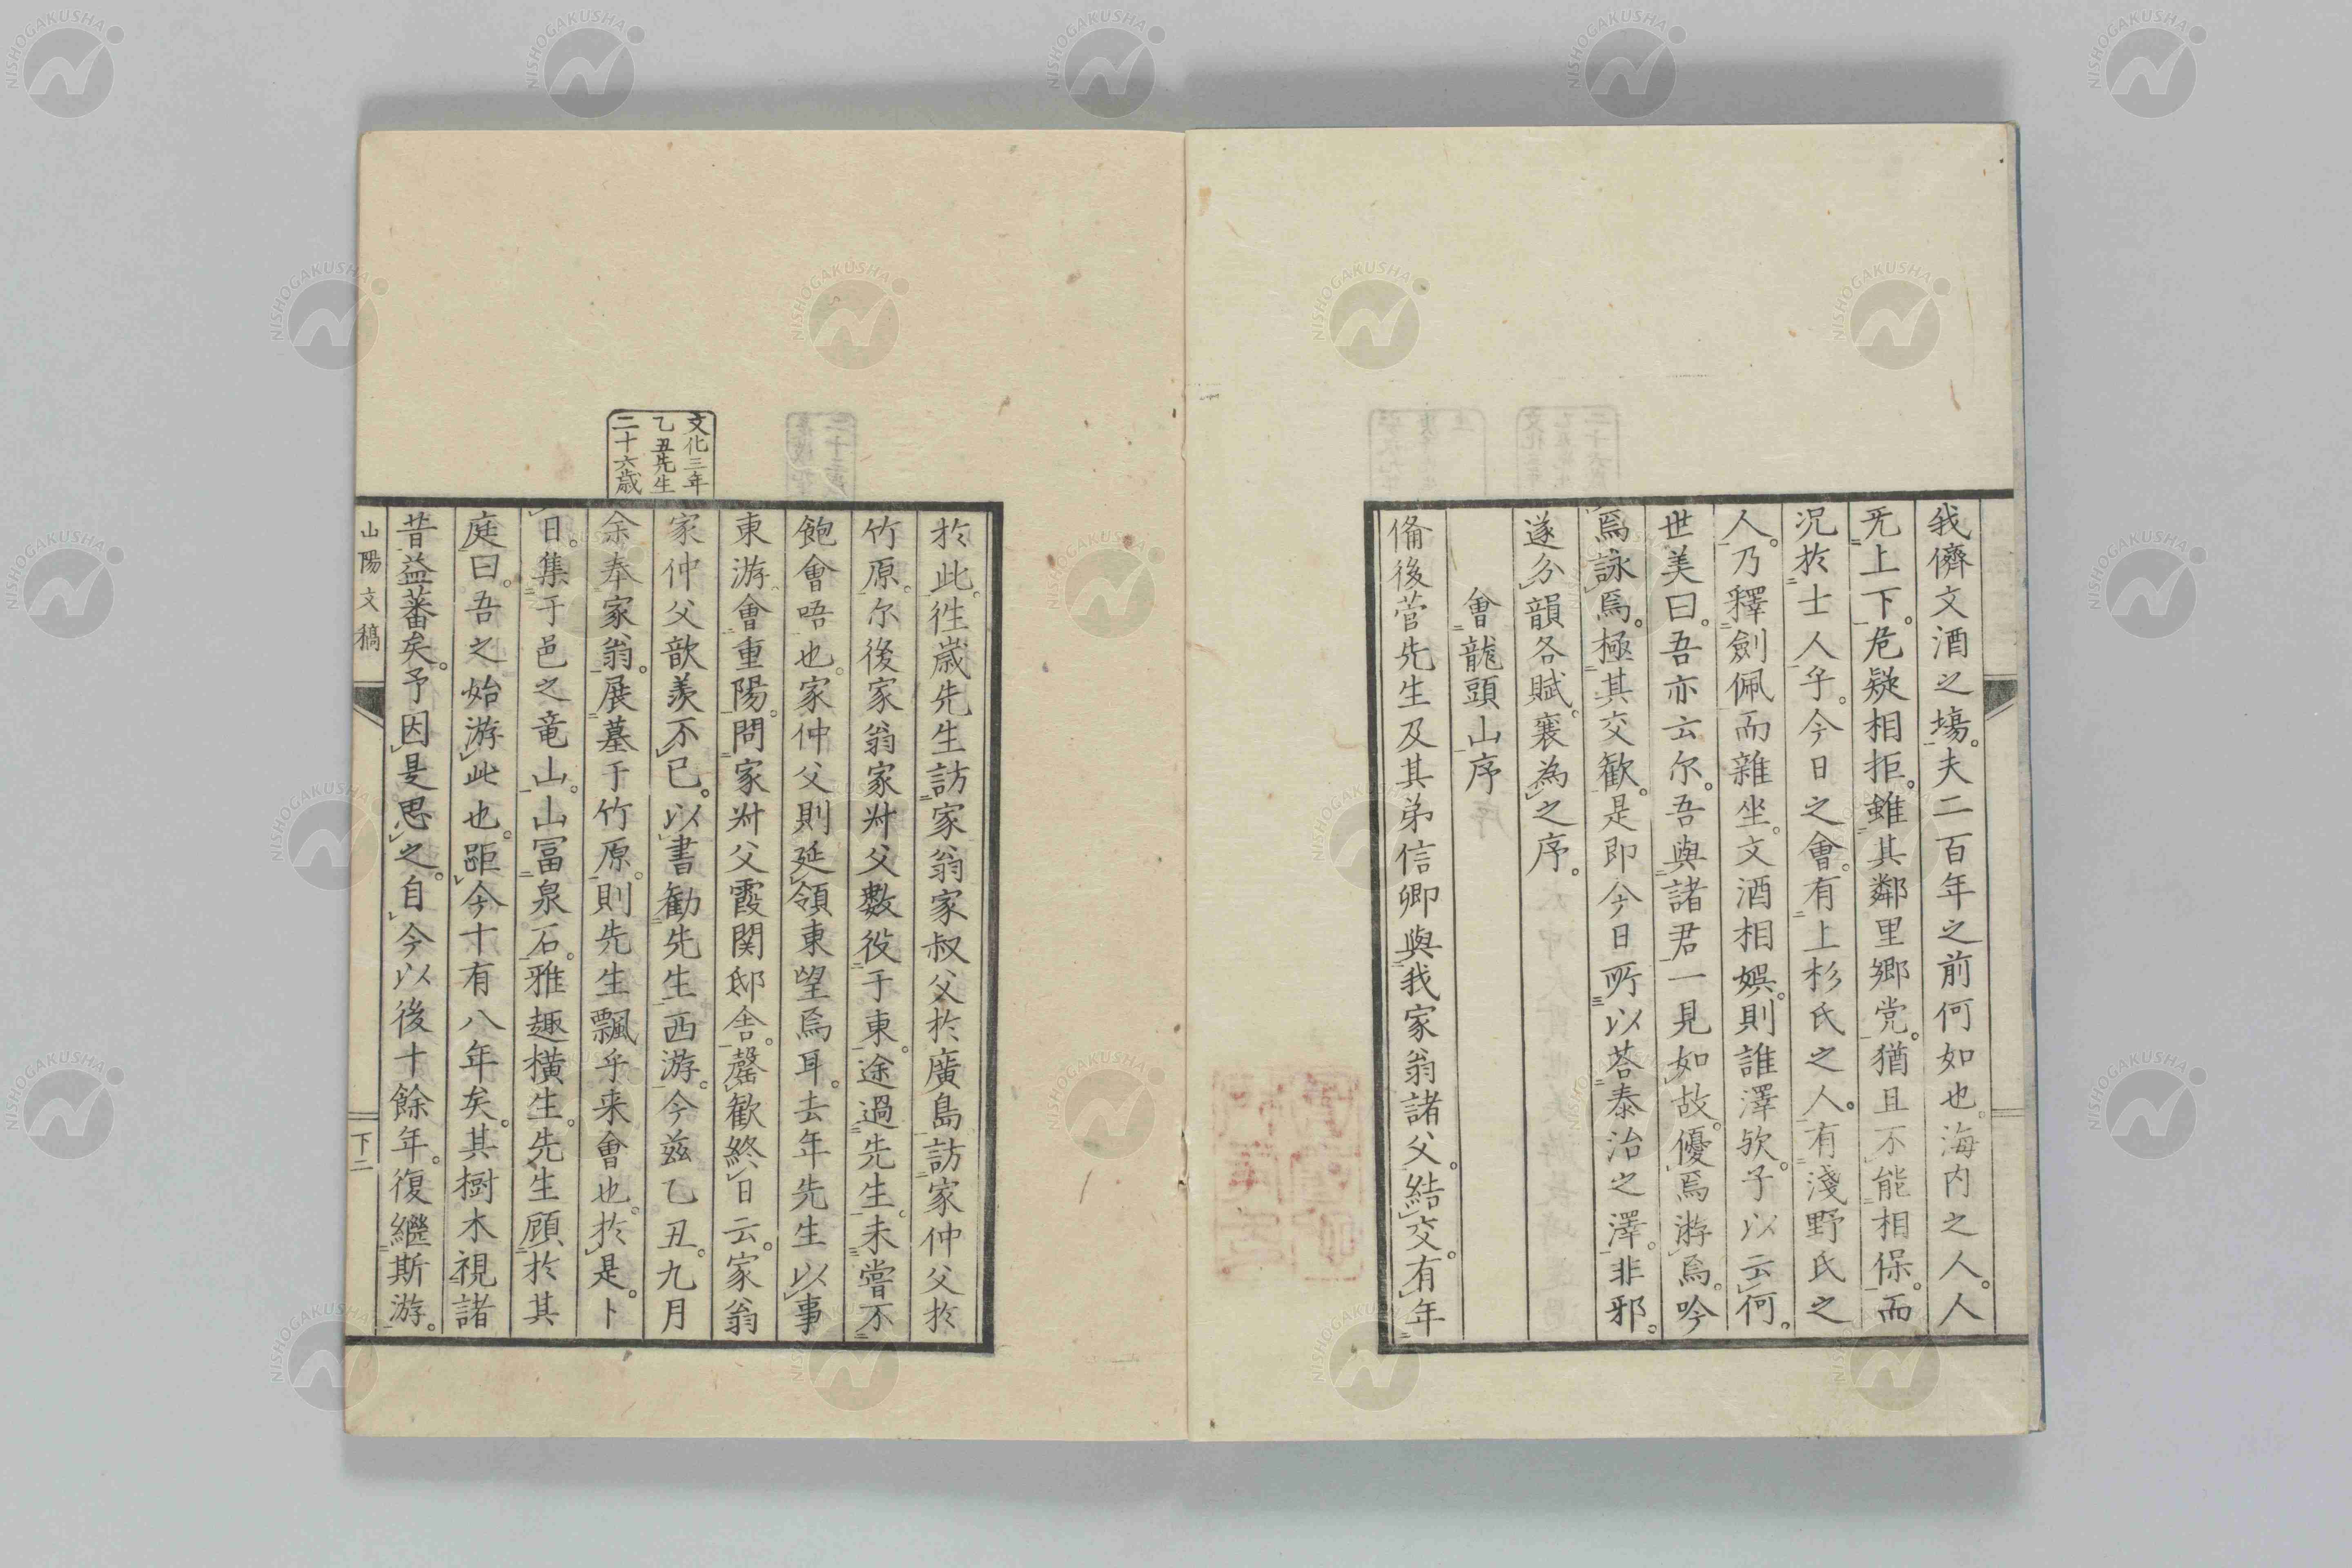 我儕文酒之場。夫二百年之前何如也。海内之人。人
无上下。危疑相拒。雖其鄰里郷党。猶且不能相保。而
况於士人乎。今日之會。有上杉氏之人。有淺野氏之
人。乃釋劍佩而雜坐。文酒相娯。則誰澤欤。子以云何。
世美曰。吾亦云尔。吾與諸君一見如故。優焉游焉。吟
焉詠焉。極其交歓。是即今日所以荅泰治之澤。非邪。
遂分韻各賦。襄為之序。
會龍頭山序
俻後菅先生及其弟信卿與我家翁諸父。結交。有年
於此。徃歳先生訪家翁家叔父於廣島訪家仲父於
竹原。尓後家翁家叔父數役于東。途過先生。未嘗不
飽會唔也。家仲父則延領東望焉耳。去年先生以事
東游。會重陽。問家叔父霞関邸舍。罄歓終日云。家翁
家仲父歆羨不已。以書勧先生西游。今茲乙丑。九月
余奉家翁。展墓于竹原。則先生飄乎来會也。於是。卜
日。集于邑之竜山。山冨泉石。雅趣横生。先生顧於其
庭曰。吾之始游此也。距今十有八年矣。其樹木視諸
昔益蕃矣。予因是思之。自今以後十餘年。復繼斯游。
文化三年
乙丑先生
二十六歳
山陽文稿
下二
NISHOGAKUSHA